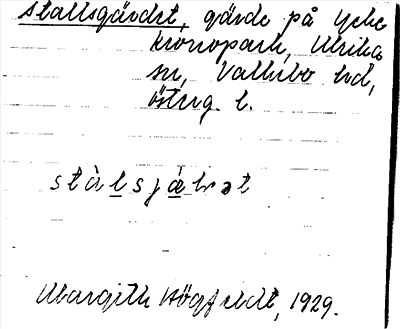 Stallsgärdet, gärde på Ycke
kronopark, Ulrika
sn, Vallebo hd,
östrg. l.
stàlsjäṙət
Margith Högfeldt, 1929.